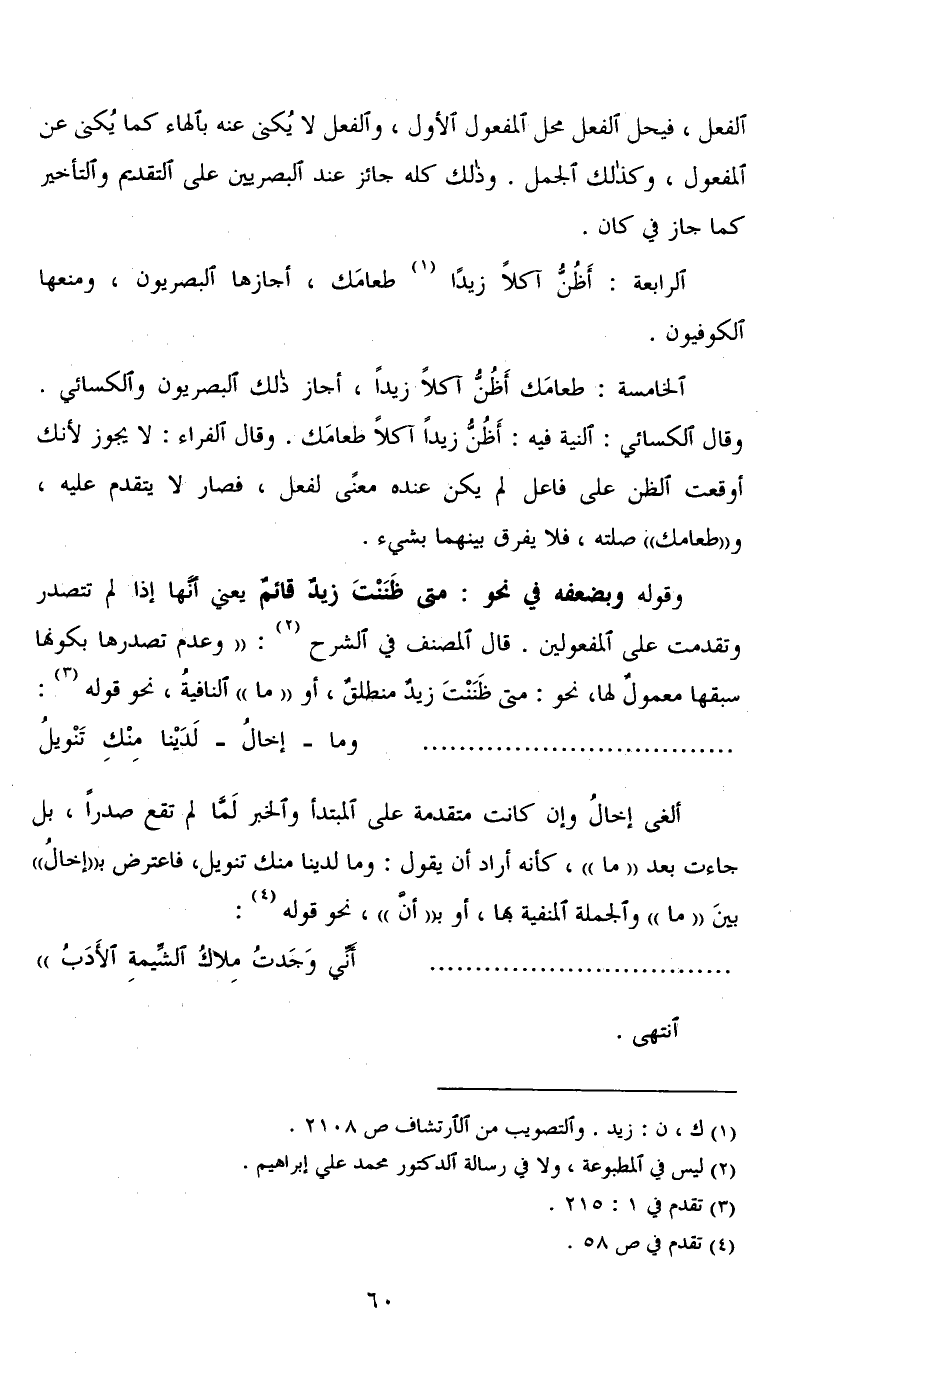 ٱلفعل ، فيحل ٱلفعل محل ٱلمفعول ٱلأول ، وٱلفعل لا يُكنى عنه بٱلهاء كما يُكنى عن
ٱلمفعول ، وكذلك ٱلجمل . وذلك كله جائز عند ٱلبصريين على ٱلتقديم وٱلتأخير
كما جاز في كان .
ٱلرابعة : أَظُنُّ آكلاً زيدًا (١) طعامَك ، أجازها ٱلبصريون ، ومنعها
ٱلكوفيون .
ٱلخامسة : طعامَك أَظُنُّ آكلاً زيداً ، أجاز ذٰلك ٱلبصريون وٱلكسائي .
وقال ٱلكسائي : ٱلنية فيه : أَظُنُّ زيداً آكلاً طعامَك . وقال الفراء : لا يجوز لأنك
أوقعت ٱلظن على فاعل لم يكن عنده معنًى لفعل ، فصار لا يتقدم عليه ،
و((طعامك)) صلته ، فلا يفرق بينهما بشيء .
وقوله وبضعفه في نحو : متى ظَنَنْتَ زيدٌ قائمٌ يعني أنَّها إذا لم تتصدر
وتقدمت على ٱلمفعولين . قال ٱلمصنف في ٱلشرح (٢) : (( وعدم تصدرها بكونها
سبقها معمولٌ لها، نحو : متى ظَنَنْتَ زيدٌ منطلقٌ ، أو (( ما )) ٱلنافيةُ ، نحو قوله (٣) :
.................................. وما ـ إخالُ ـ لَدَيْنا مِنْكِ تَنْويلُ
ألغى إخالُ وإن كانت متقدمة على ٱلمبتدأ وٱلخبر لَمَّا لم تقع صدراً ، بل
جاءت بعد (( ما )) ، كأنه أراد أن يقول : وما لدينا منك تنويل، فاعترض بـ((إخالُ))
بينَ (( ما )) وٱلجملة ٱلمنفية بها ، أو بـ(( أنَّ )) ، نحو قوله (٤) :
................................. أَنِّي وَجَدتُ مِلاكُ ٱلشِّيمةِ ٱلأَدَبُ ))
ٱنتهى .
(١) ك ، ن : زيد . وٱلتصويب من ٱلارتشاف ص ٢١٠٨ .
(٢) ليس في ٱلمطبوعة ، ولا في رسالة ٱلدكتور محمد علي إبراهيم .
(٣) تقدم في ١ : ٢١٥ .
(٤) تقدم في ص ٥٨ .
٦٠